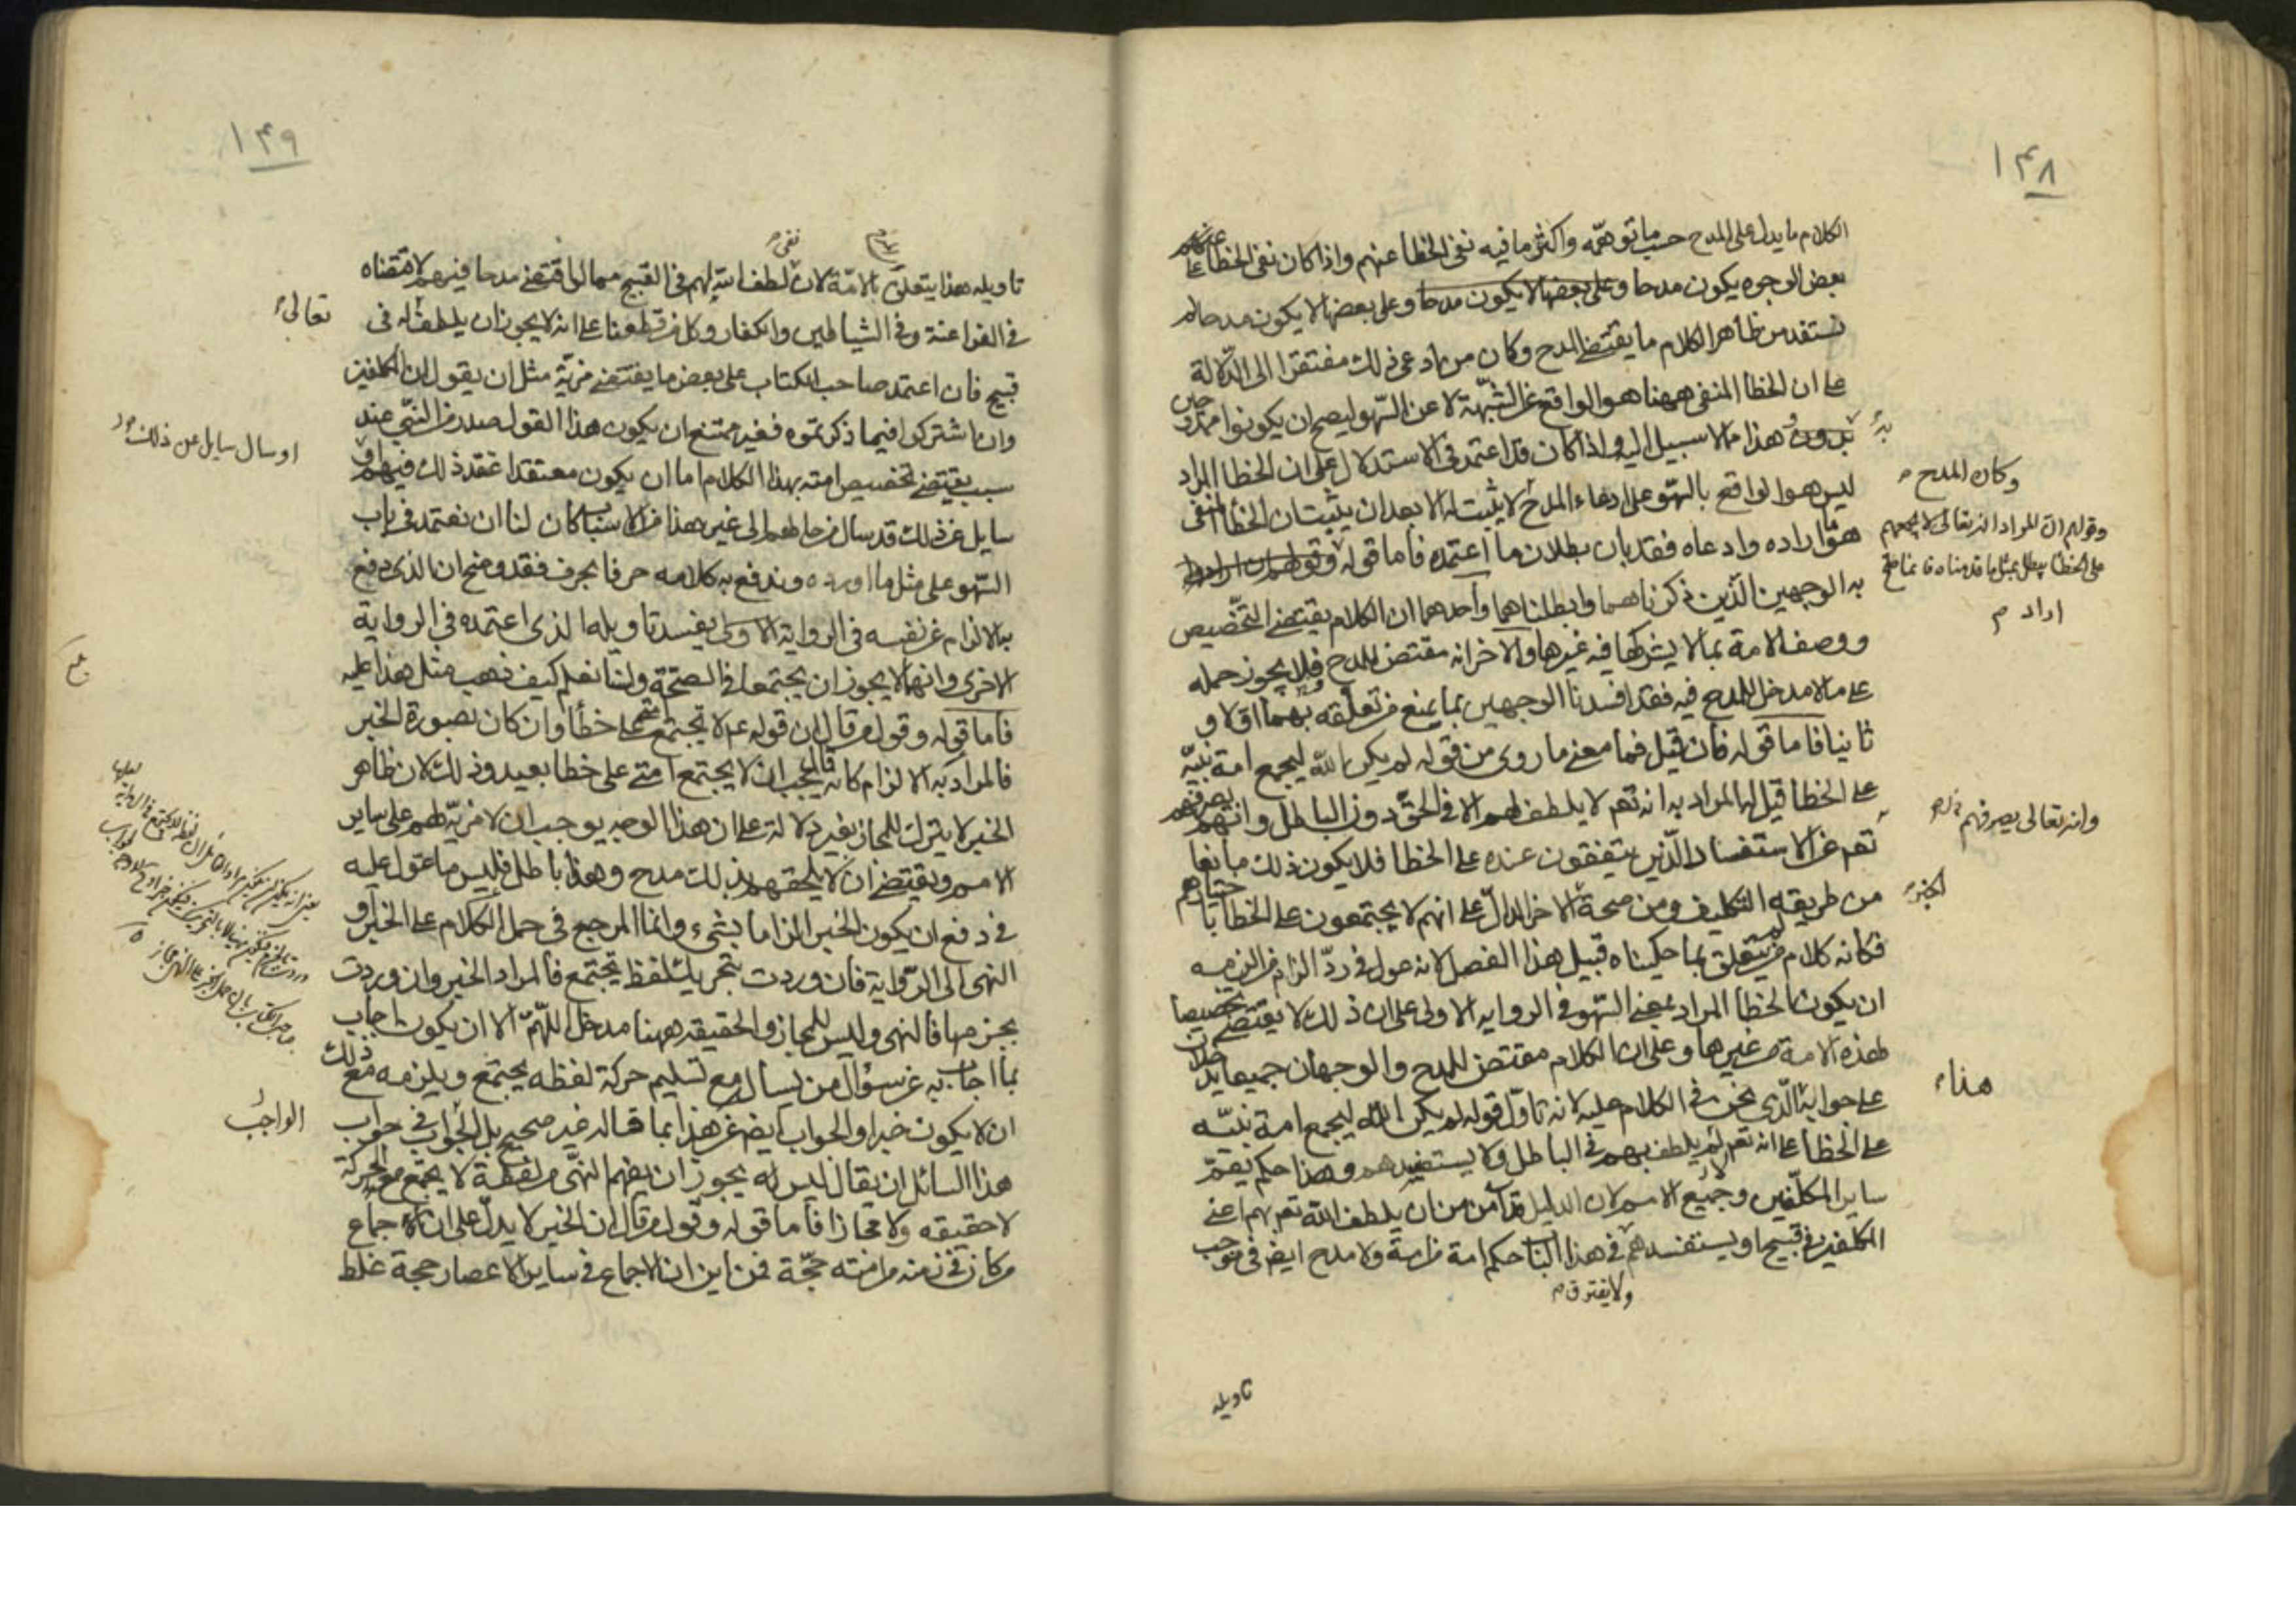 ١۴٨
الكلام ما يدل على المدح حسب ما توهمه واكثر ما فيه نفى الخطأ عنهم واذا كان نفى الخطأ عنهم على
بعض الوجوه يكون مدحا وعلى بعضها لا يكون مدحا وعلى بعضها لا يكون مدحا لم
نستفد من ظاهر الكلام ما يقتضى المدح وكان من ادعى ذلك مفتقرا الى الدلالة
على ان الخطأ المنفى ههنا هو الواقع عن الشبهة لا عن السهو ليصح ان يكونوا ممدوحين
به ودون هذا ما لا سبيل اليه واذا كان قد اعتمد فى الاستدلال على ان الخطأ المراد
ليس هو الواقع بالسهو على ادعاء المدح لا يثبت له الا بعد ان يثبت ان الخطأ المنفى
هو ما اراده وادعاه فقد بان بطلان ما اعتمده فاما قوله وقولهم ان المراد
به الوجهين الذين ذكرناهما وابطلناهما واحدهما ان الكلام يقتضى التخصيص
ووصف الامة بما لا يشركها فيه غيرها والاخر انه مقتض للمدح فلا يجوز حمله
على ما لا مدخل للمدح فيه فقد افسدنا الوجهين بما يمنع من تعلقه بهما اولا و
ثانيا فاما قوله فان قيل فما معنى ما روى من قوله لم يكن الله ليجمع امة نبيه
على الخطأ قيل له المراد به انه تعم لا يلطف لهم الا فى الحق دون الباطل وانه يصرفهم
تعم عن الاستفساد الذين يتفقون عنده على الخطا فلا يكون ذلك مانعا
من طريقه التكليف ومن صحة الاخر الدال على انهم لا يجتمعون على الخطأ باختيارهم
فكانه كلام من يتعلق بما حكيناه قبيل هذا الفصل لانه عول فى رد الزام من الزمه
ان يكون الخطأ المراد بمعنى السهو فى الرواية الاولى على ان ذلك لا يقتضى تخصيصا
لهذه الامة من غيرها وعلى ان الكلام مقتض للمدح والوجهان جميعا يدخلان
على جوابه الذى نحن فى الكلام عليه لانه تاول قوله لم يكن الله ليجمع امة نبيه
على الخطأ على انه تعم لم يلطف بهم فى الباطل ولا يستفسدهم وهذا حكم يعم
ساير المكلفين وجميع الامم لان الدليل قد آمن من ان يلطف الله تعم بهم اعنى
المكلفين فى قبيح او يستفسدهم فى هذا الباب حكم امة من امة ولا مدح ايض فى موجب
ولا يفترق
تاويله
وكان المدح
وقولهم ان المراد انه تعالى لا يجمعهم
على الخطأ يبطل بمثل ما قدمناه فانما
اراد
وانه تعالى يصرفهم
الخبر
هنا
١۴٩
تاويله هذا يتعلق بالامة لان لطف الله لهم فى القبيح مما لو اقتضى مدحا فيهم لاقتضاه
فى الفراعنة وفى الشياطين والكفار وكل من قطعنا على انه لا يجوز ان يلطف له فى
قبيح فان اعتمد صاحب الكتاب على بعض ما يقتضى مزية مثل ان يقول ان المكلفين
وان اشتركوا فيما ذكرتموه فغير ممتنع ان يكون هذا القول صدر من النبى عند
سبب يقتضى تخصيص امته بهذا الكلام اما ان يكون معتقدا اعتقد ذلك فيهم او
سايل عن ذلك قد سال من حالهم الى غير هذا من الاسباب كان لنا ان نعتمد فى باب
السهو على مثل ما اورده وندفع به كلامه حرفا بحرف فقد وضح ان الذى دفع
به الالزام عن نفسه فى الرواية الاولى يفسد تاويله الذى اعتمده فى الرواية
الاخرى وانهما لا يجوز ان يجتمعا فى الصحة ولسنا نعلم كيف ذهب مثل هذا عليه
فاما قوله وقول من قال ان قوله عم لا تجتمع امتى على خطأ وان كان بصورة الخبر
فالمراد به الالزام كانه قال يجب ان لا يجتمع امتى على خطا بعيد وذلك لان ظاهر
الخبر لا يترك للمجاز بغير دلالة على ان هذا الوجه يوجب ان لا مزية لهم على ساير
الامم ويقتضى ان لا يلحقهم بذلك مدح وهذا باطل فليس ما عول عليه
فى دفع ان يكون الخبر الزاما بشىء وانما المرجع فى حمل الكلام على الخبر او
النهى الى الرواية فان وردت بتحريك لفظ يجتمع فالمراد الخبر وان وردت
بجزمها فالنهى وليس للمجاز والحقيقه ههنا مدخل اللهم الا ان يكون اجاب
بما اجاب به عن سؤال من يسال مع تسليم حركة لفظه يجتمع ويلزمه مع ذلك
ان لا يكون خبرا والجواب ايض عن هذا بما قاله غير صحيح بل الجواب فى جواب
هذا السائل ان يقال ليس له يجوز ان يفهم النهى من لفظة لا يجتمع مع الحركة
لا حقيقه ولا مجازا فاما قوله وقول من قال ان الخبر لا يدل على ان الاجماع
من كان فى زمنه من امته حجة فمن اين ان الاجماع فى ساير الاعصار حجة غلط
نفى
تعالى
او سال سايل عن ذلك
الواجب